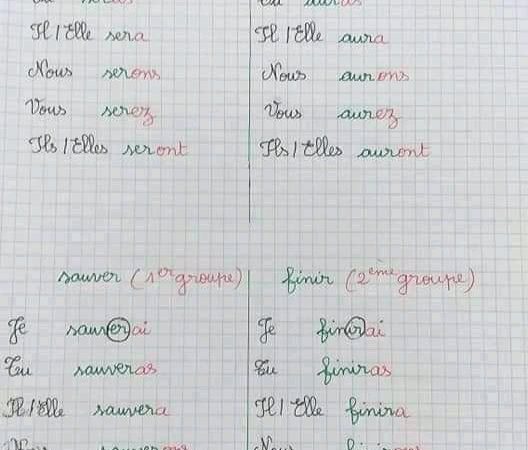 Il / Elle sera
Nous serons
Vous serez
Ils / Elles seront
Il / Elle aura
Nous aurons
Vous aurez
Ils / Elles auront
sauver (1er groupe)
Je sauverai
Tu sauveras
Il / Elle sauvera
finir (2ème groupe)
Je finirai
Tu finiras
Il / Elle finira